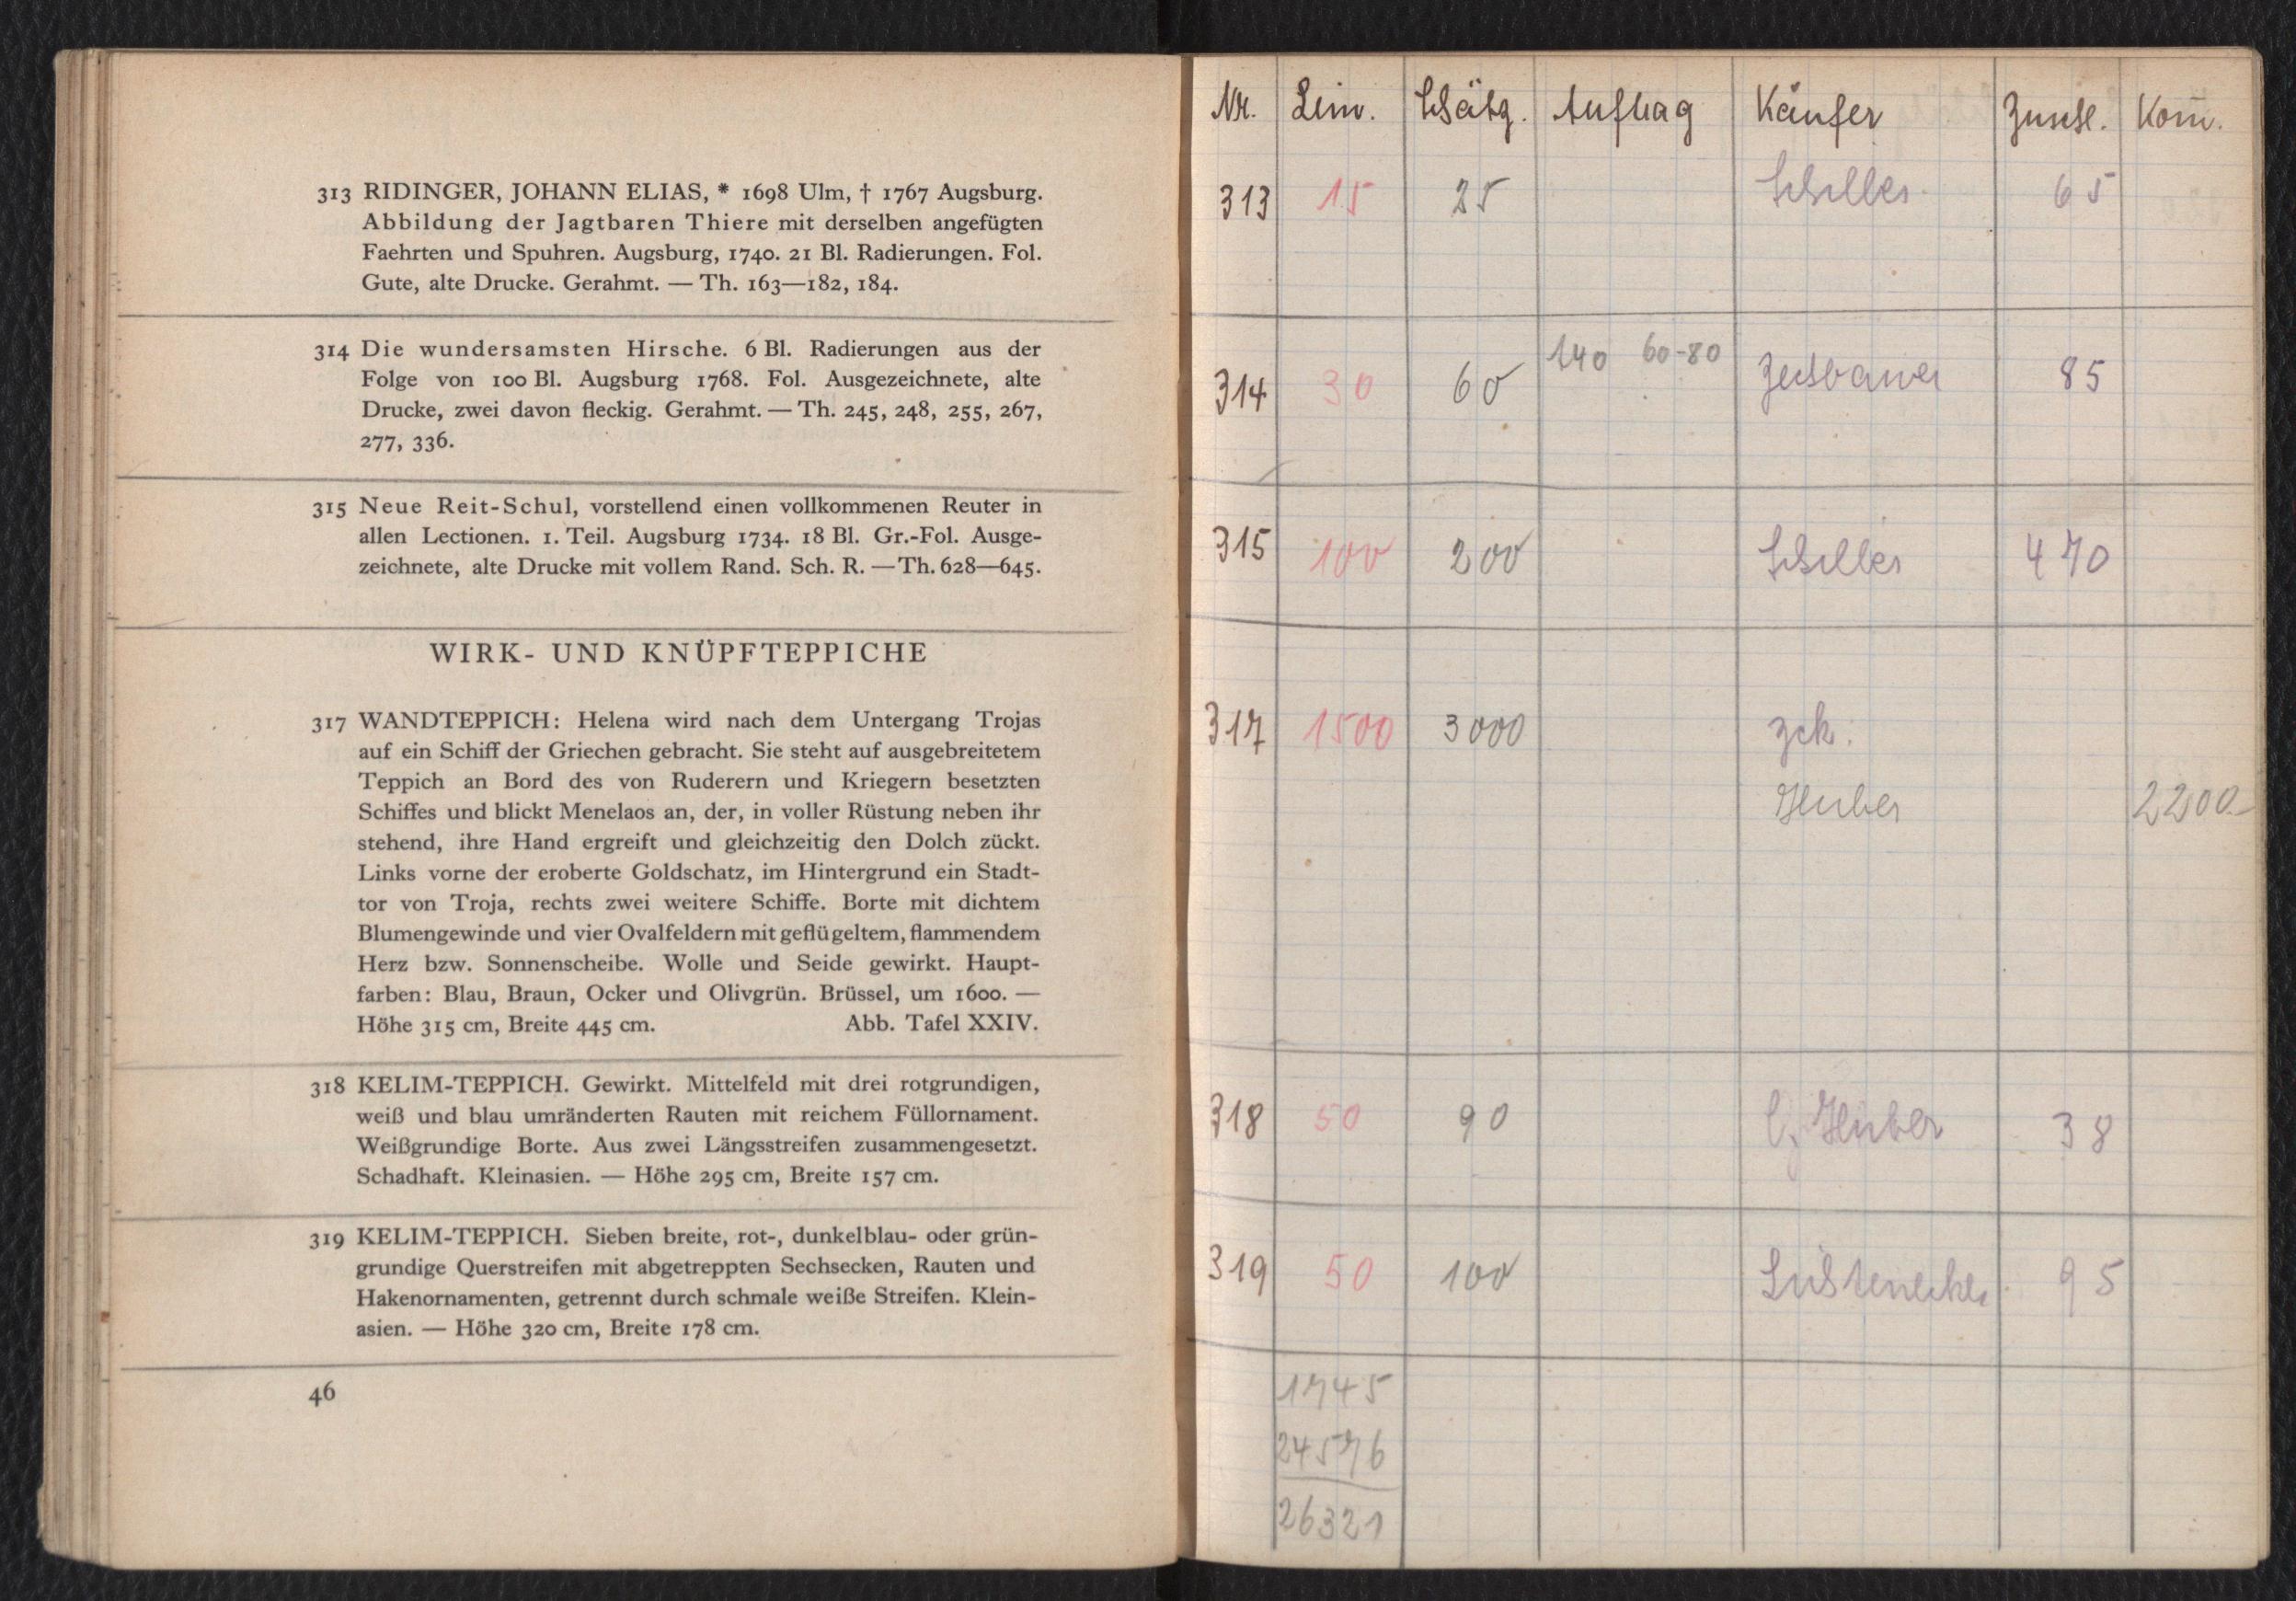 313 RIDINGER, JOHANN ELIAS, * 1698 Ulm, † 1767 Augsburg.
Abbildung der Jagtbaren Thiere mit derselben angefügten
Faehrten und Spuhren. Augsburg, 1740. 21 Bl. Radierungen. Fol.
Gute, alte Drucke. Gerahmt. — Th. 163—182, 184.
314 Die wundersamsten Hirsche. 6 Bl. Radierungen aus der
Folge von 100 Bl. Augsburg 1768. Fol. Ausgezeichnete, alte
Drucke, zwei davon fleckig. Gerahmt. — Th. 245, 248, 255, 267,
277, 336.
315 Neue Reit-Schul, vorstellend einen vollkommenen Reuter in
allen Lectionen. 1. Teil. Augsburg 1734. 18 Bl. Gr.-Fol. Ausge-
zeichnete, alte Drucke mit vollem Rand. Sch. R. — Th. 628—645.
WIRK- UND KNÜPFTEPPICHE
317 WANDTEPPICH: Helena wird nach dem Untergang Trojas
auf ein Schiff der Griechen gebracht. Sie steht auf ausgebreitetem
Teppich an Bord des von Ruderern und Kriegern besetzten
Schiffes und blickt Menelaos an, der, in voller Rüstung neben ihr
stehend, ihre Hand ergreift und gleichzeitig den Dolch zückt.
Links vorne der eroberte Goldschatz, im Hintergrund ein Stadt-
tor von Troja, rechts zwei weitere Schiffe. Borte mit dichtem
Blumengewinde und vier Ovalfeldern mit geflügeltem, flammendem
Herz bzw. Sonnenscheibe. Wolle und Seide gewirkt. Haupt-
farben: Blau, Braun, Ocker und Olivgrün. Brüssel, um 1600. —
Höhe 315 cm, Breite 445 cm. Abb. Tafel XXIV.
318 KELIM-TEPPICH. Gewirkt. Mittelfeld mit drei rotgrundigen,
weiß und blau umränderten Rauten mit reichem Füllornament.
Weißgrundige Borte. Aus zwei Längsstreifen zusammengesetzt.
Schadhaft. Kleinasien. — Höhe 295 cm, Breite 157 cm.
319 KELIM-TEPPICH. Sieben breite, rot-, dunkelblau- oder grün-
grundige Querstreifen mit abgetreppten Sechsecken, Rauten und
Hakenornamenten, getrennt durch schmale weiße Streifen. Klein-
asien. — Höhe 320 cm, Breite 178 cm.
46
Nr. Lim. Schätz. Auftrag Käufer Zuschl. Kom.
313 15 25 65
314 30 60 140 60-80 85
315 100 200 470
317 1500 3000 zck.
Huber 2200.-
318 50 90 Huber 38
319 50 100 95
1745
24576
26321